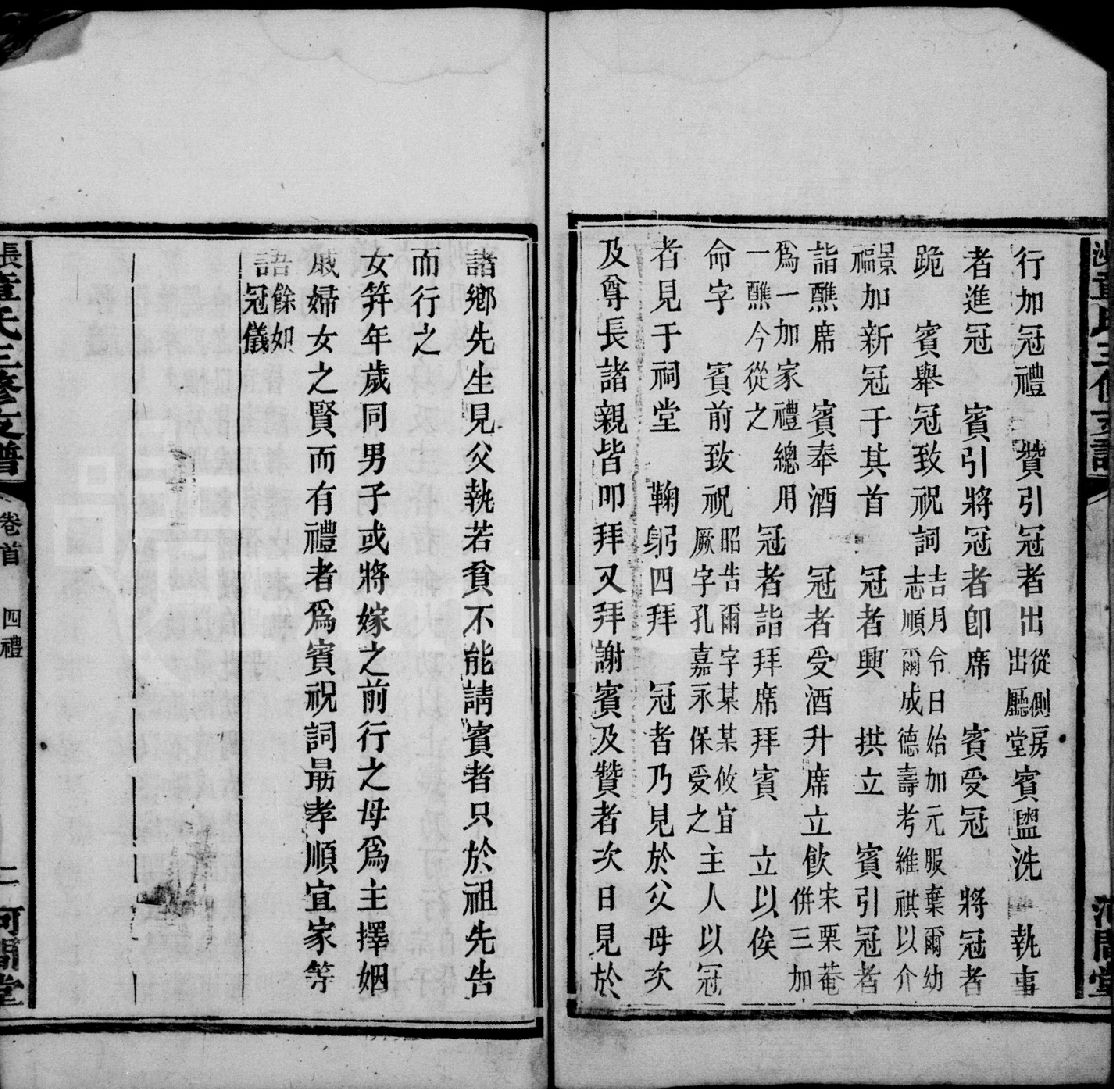 行加冠禮　贊引冠者出從側房出廳堂賓盥洗　執事
者進冠　賓引將冠者卽席　賓受冠　將冠者
跪　賓舉冠致祝詞吉月令日始加元服葉爾幼志順爾成德壽考維祺以介
景福加新冠于其首　冠者興　拱立　賓引冠者
詣醮席　賓奉酒　冠者受酒升席立飮宋栗菴併三加
爲一加家禮總用一醮今從之　冠者詣拜席拜賓　立以俟
命字　賓前致祝昭告爾字某某攸宜厥字孔嘉永保受之　主人以冠
者見于祠堂　鞠躬四拜　冠者乃見於父母次
及尊長諸親皆叩拜又拜謝賓及贊者次日見於
諸鄉先生見父執若貧不能請賓者只於祖先告
而行之
女笄年歲同男子或將嫁之前行之母爲主擇姻
戚婦女之賢而有禮者爲賓祝詞最孝順宜家等
語餘如冠儀
張童氏三修支譜
卷首　四禮
二　河間堂